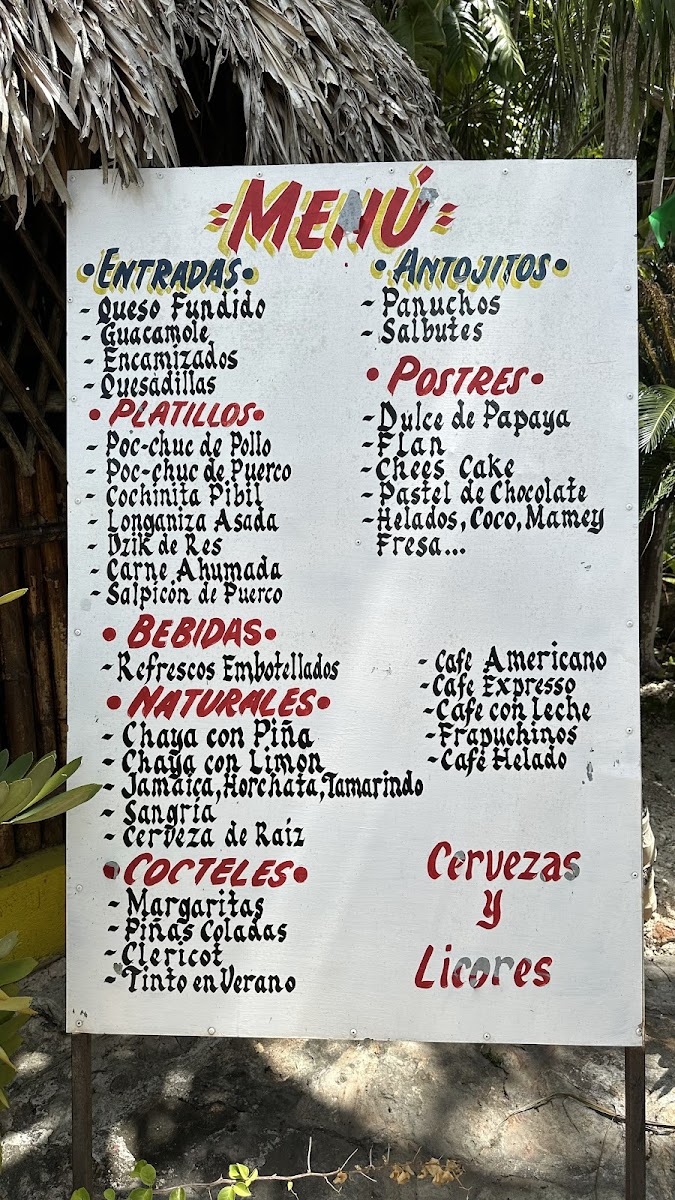 MENÚ
•ENTRADAS•
- Queso Fundido
- Guacamole
- Encamizados
- Quesadillas
•PLATILLOS•
- Poc-chuc de Pollo
- Poc-chuc de Puerco
- Cochinita Pibil
- Longaniza Asada
- Dzik de Res
- Carne Ahumada
- Salpicón de Puerco
•BEBIDAS•
- Refrescos Embotellados
•NATURALES•
- Chaya con Piña
- Chaya con Limon
- Jamaica, Horchata, Tamarindo
- Sangría
- Cerveza de Raíz
•COCTELES•
- Margaritas
- Piñas Coladas
- Clericot
- Tinto en Verano
•ANTOJITOS•
- Panuchos
- Salbutes
•POSTRES•
- Dulce de Papaya
- Flan
- Chees Cake
- Pastel de Chocolate
- Helados, Coco, Mamey
Fresa...
- Café Americano
- Cafe Expresso
- Cafe con Leche
- Frapuchinos
- Café Helado
Cervezas
y
Licores